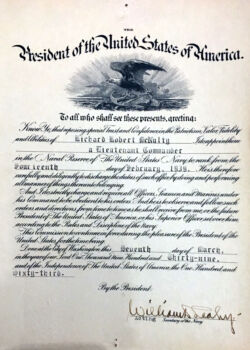 THE
President of the United States of America.
To all who shall see these presents, greeting:
Know Ye, that reposing special Trust and Confidence in the Patriotism, Valor, Fidelity
and Abilities of Richard Robert McNulty I do appoint him
a Lieutenant Commander
in the Naval Reserve of The United States Navy to rank from the
Fourteenth day of February, 1939. He is therefore
carefully and diligently to discharge the duties of such office by doing and performing
all manner of things thereunto belonging.
And I do strictly charge and require all Officers, Seamen and Marines under
his Command to be obedient to his orders. And he is to observe and follow such
orders and directions, from time to time, as he shall receive from me, or the future
President of The United States of America, or his Superior Officer set over him,
according to the Rules and Discipline of the Navy.
This Commission to continue in force during the pleasure of the President of the
United States, for the time being.
Done at the City of Washington this Seventh day of March,
in the year of our Lord One Thousand Nine Hundred and Thirty-nine,
and of the Independence of The United States of America, the One Hundred and
Sixty-third.
By the President:
William D Leahy
Acting Secretary of the Navy